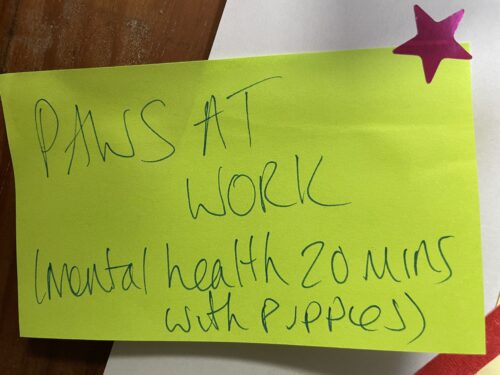 PAWS AT
WORK
(mental health 20 mins
with puppies)